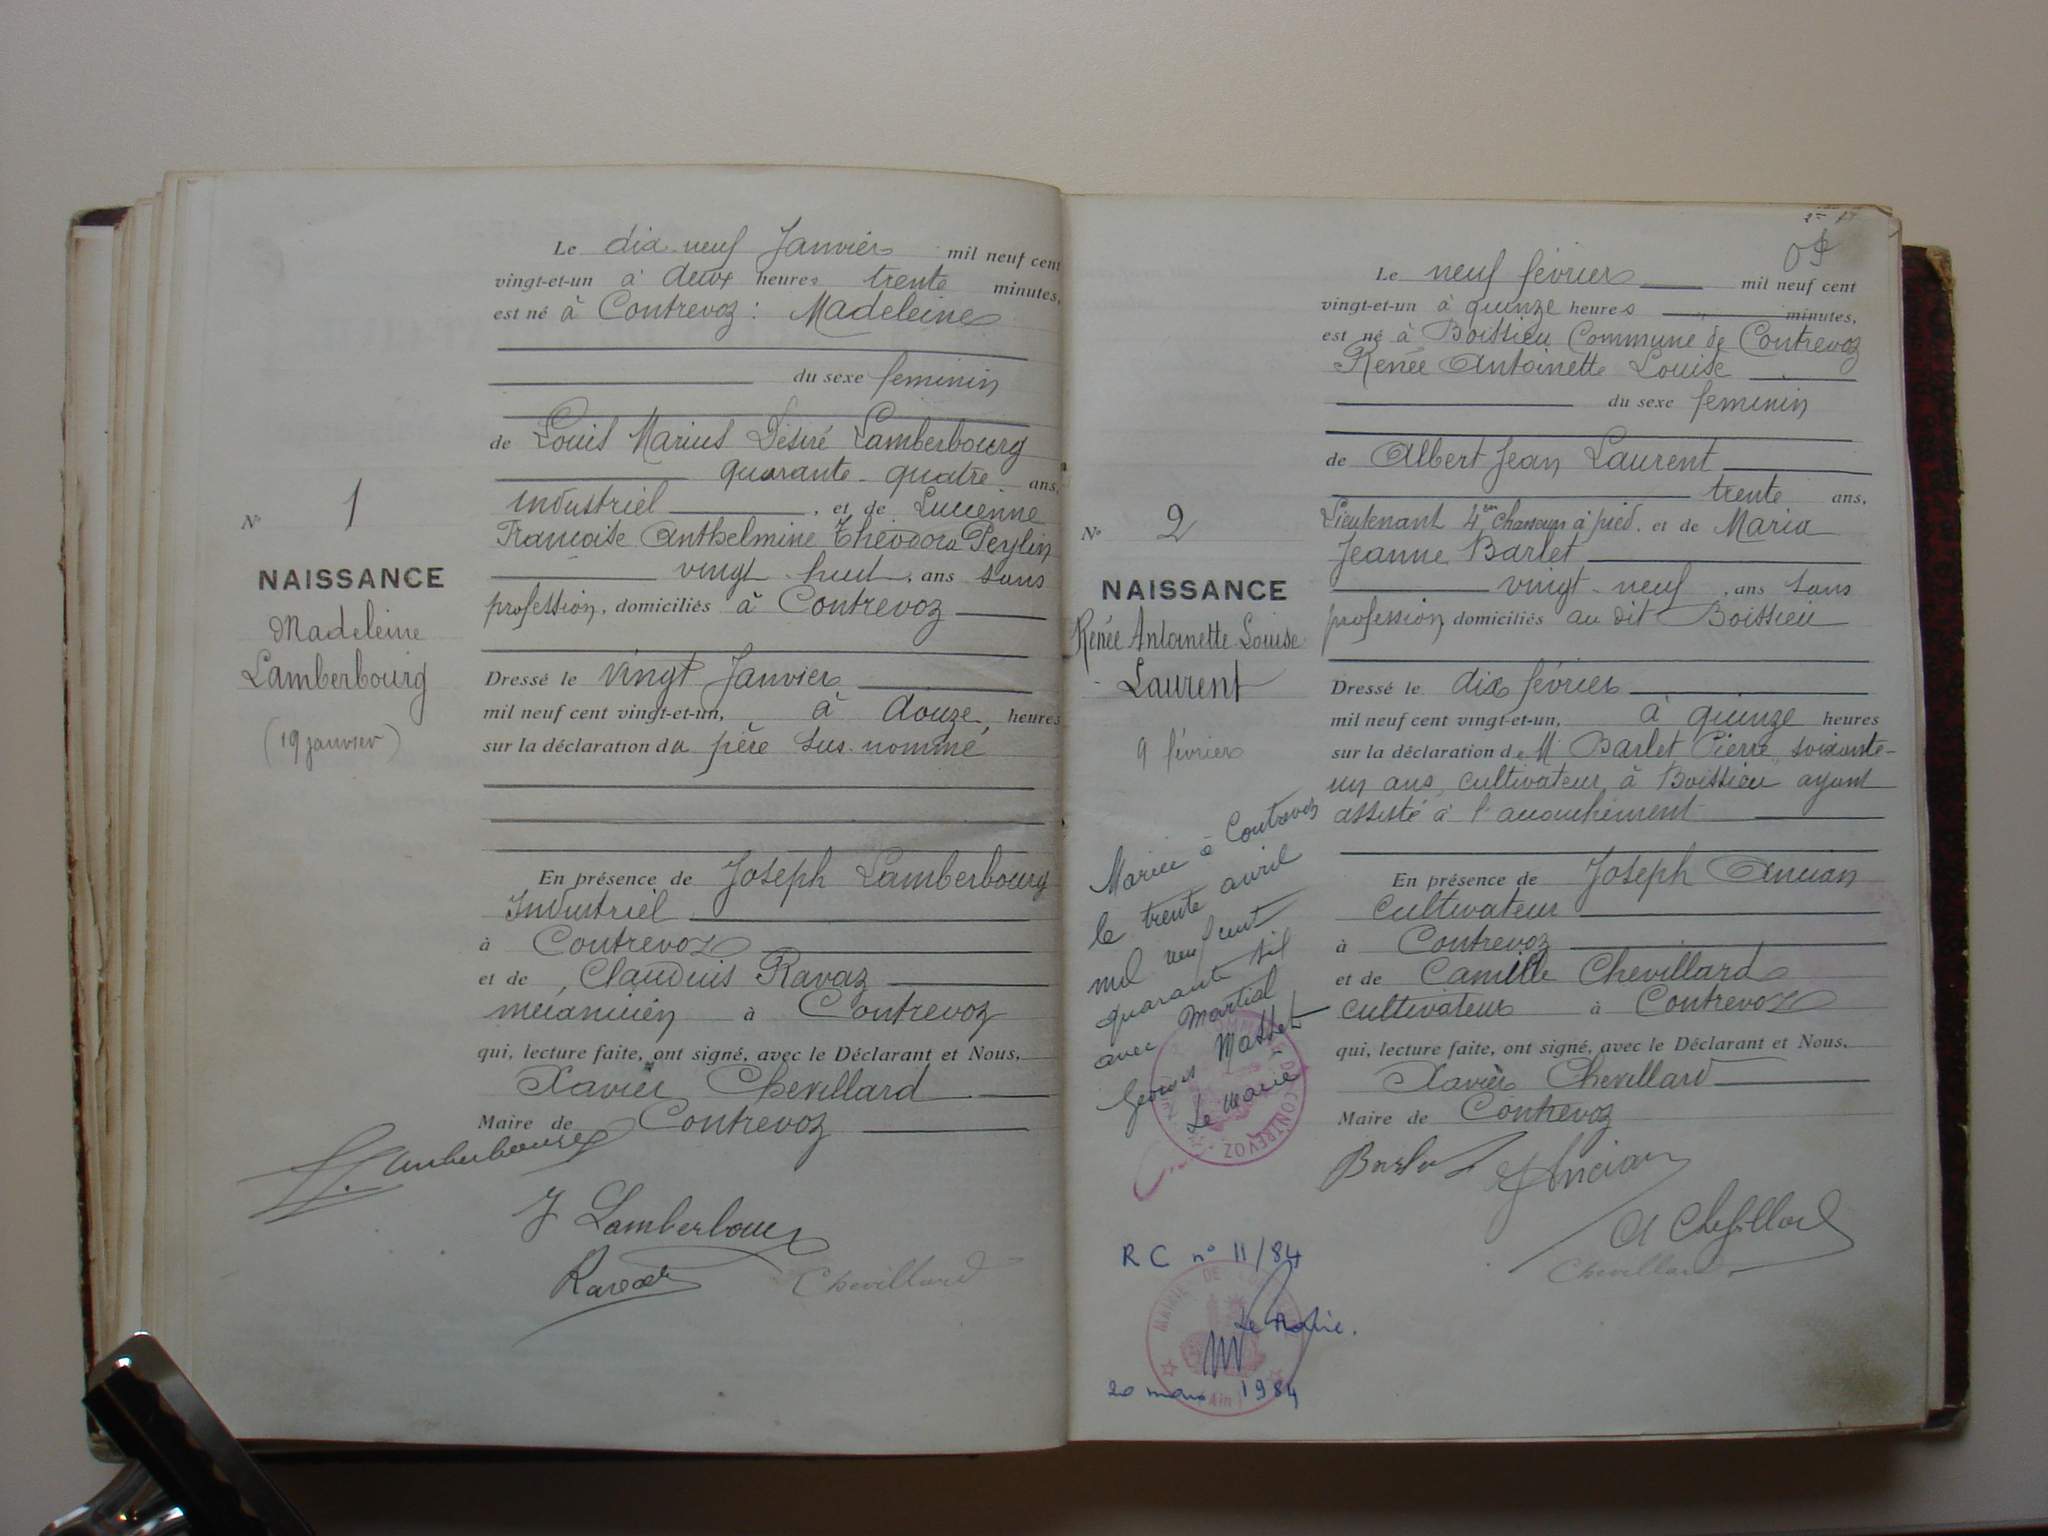 Le dix neuf Janvier mil neuf cent
vingt-et-un à deux heures trente minutes,
est né à Contrevoz : Madeleine
du sexe feminin
de Louis Marius Désiré Lamberbourg
quarante-quatre ans,
industriel, et de Lucienne
Françoise Anthelmine Théodora Peylin
vingt-huit, ans sans
profession, domiciliés à Contrevoz
Dressé le vingt Janvier
mil neuf cent vingt-et-un, à douze heures
sur la déclaration du père sus-nommé
En présence de Joseph Lamberbourg
Industriel
à Contrevoz
et de Claudius Ravaz
mécanicien à Contrevoz
qui, lecture faite, ont signé, avec le Déclarant et Nous,
Xavier Chevillard
Maire de Contrevoz
Lamberbourg
J Lamberbourg
Ravaz Chevillard
N° 1
NAISSANCE
Madeleine
Lamberbourg
(19 janvier)
Le neuf février mil neuf cent
vingt-et-un à quinze heures minutes,
est né à Boissieu Commune de Contrevoz
Renée Antoinette Louise
du sexe feminin
de Albert Jean Laurent
trente ans,
Lieutenant 4em chasseurs à pied, et de Maria
Jeanne Barlet
vingt-neuf, ans sans
profession domiciliés au dit Boissieu
Dressé le dix février
mil neuf cent vingt-et-un, à quinze heures
sur la déclaration de M Barlet Pierre, soixante-
un ans, cultivateur, à Boissieu ayant
assisté à l'accouchement
En présence de Joseph Ancian
cultivateur
à Contrevoz
et de Camille Chevillard
cultivateur à Contrevoz
qui, lecture faite, ont signé, avec le Déclarant et Nous,
Xavier Chevillard
Maire de Contrevoz
Barlet J Ancian
Chevillard
Chevillard
N° 2
NAISSANCE
Renée Antoinette Louise
Laurent
9 février
Mariée à Contrevoz
le trente avril
mil neuf cent
quarante six
avec Martial
Georges Masset
Le Maire
CONTREVOZ
R C n° 11/84
MAIRIE DE
Le Maire.
20 mars 1984
(Ain)